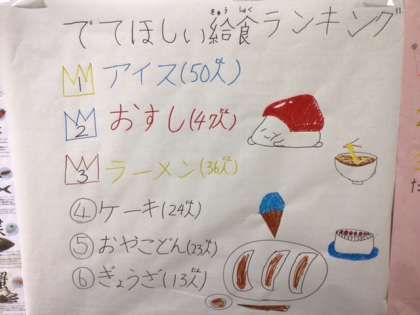 でてほしい給食ランキング
きゅう しょく
1 アイス(50人)
2 おすし(47人)
3 ラーメン(36人)
④ケーキ(24人)
⑤おやこどん(23人)
⑥ぎょうざ(13人)